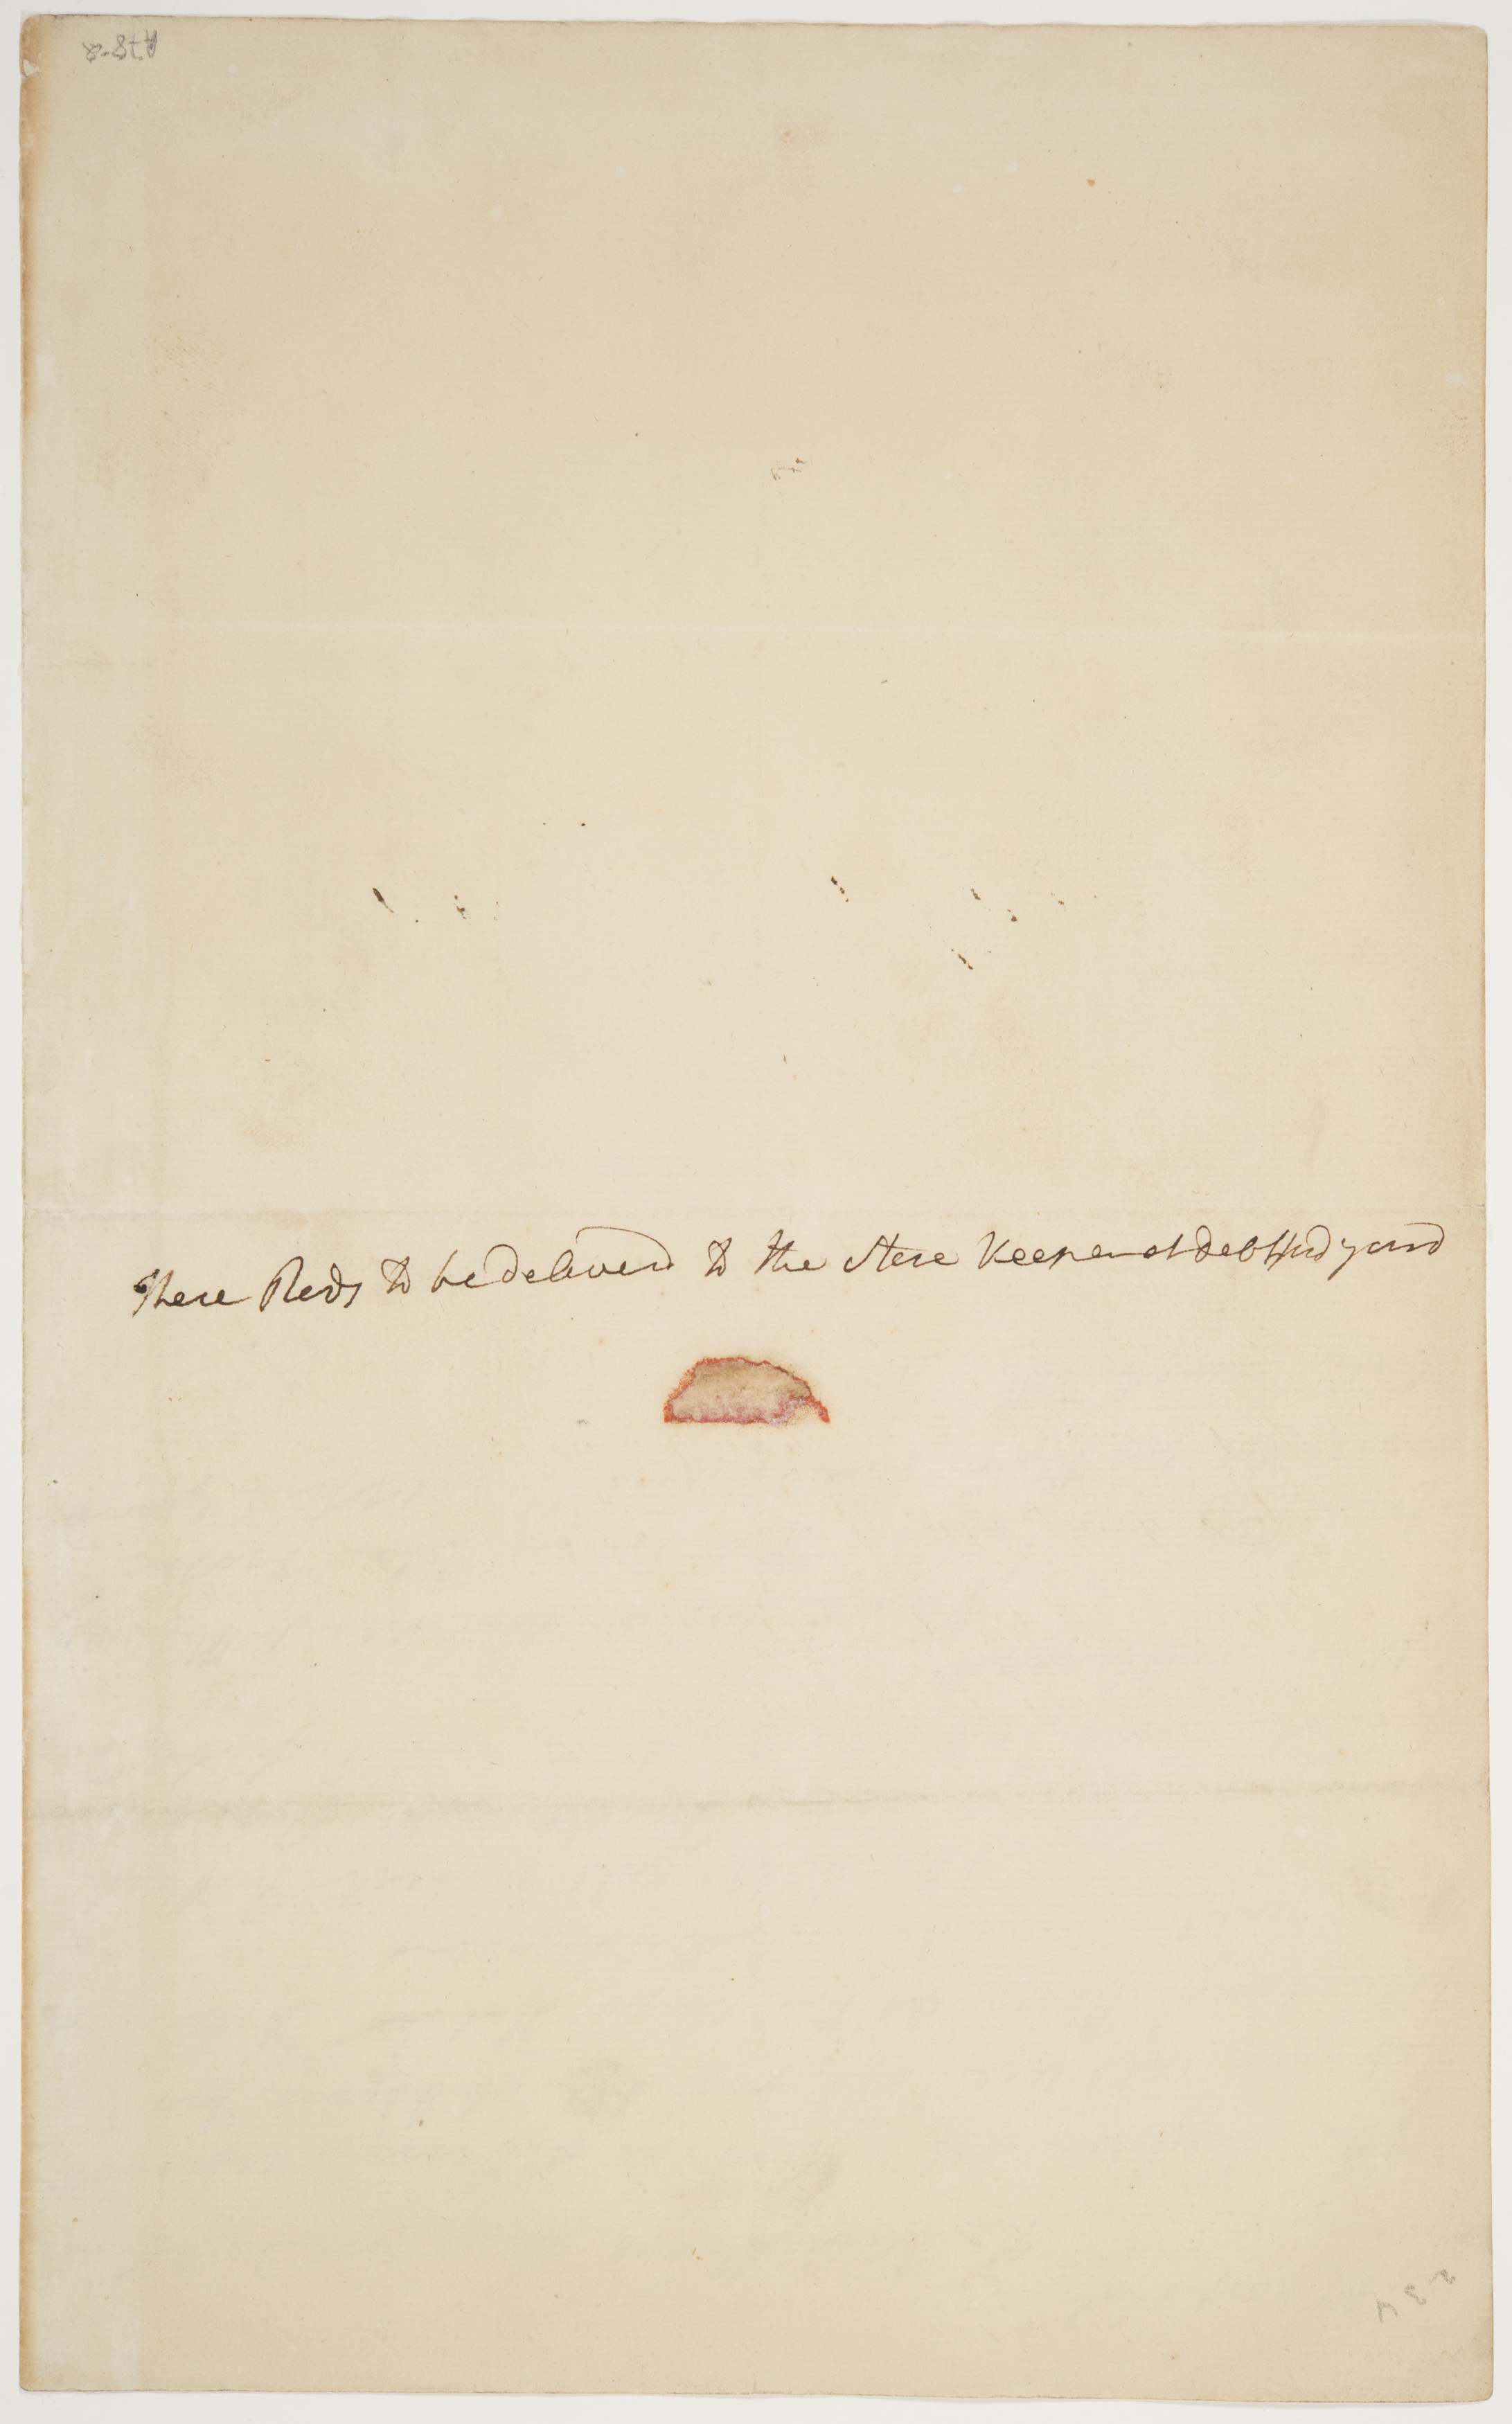 A78-8
These Reds to be deliverd to the store Keeper at debtford yard